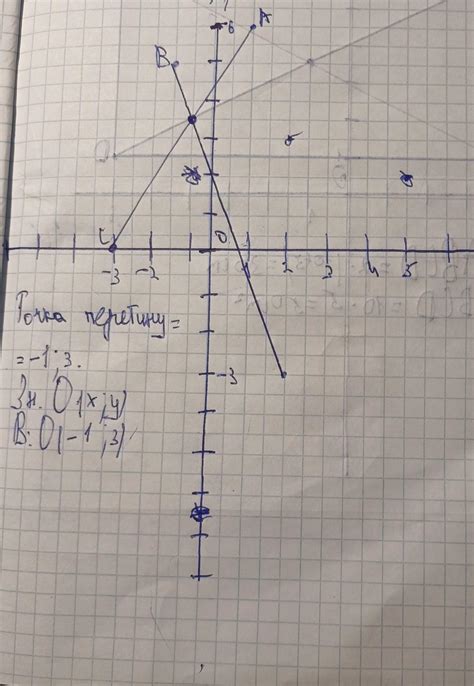 6
A
B
C
0
-3 -2 2 3 4 5
-3
Точка перетину=
=-1;3.
Зн. O(x;y)
В: O(-1;3)